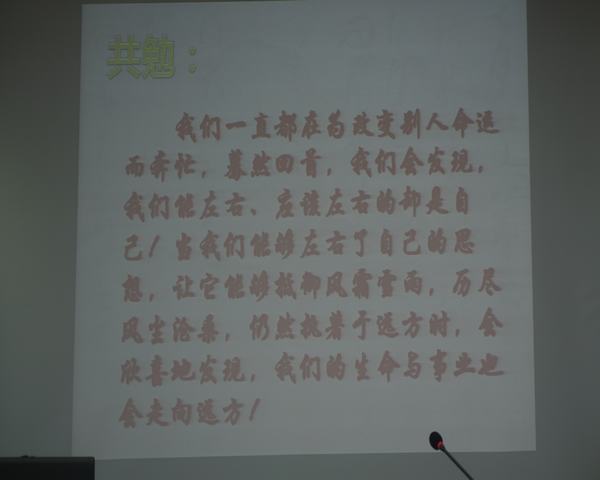 共勉：
我们一直都在为改变别人命运
而奔忙，蓦然回首，我们会发现，
我们能左右、应该左右的却是自
己！当我们能够左右了自己的思
想，让它能够抵御风霜雪雨，历尽
风尘沧桑，仍然执着于远方时，会
欣喜地发现，我们的生命与事业也
会走向远方！